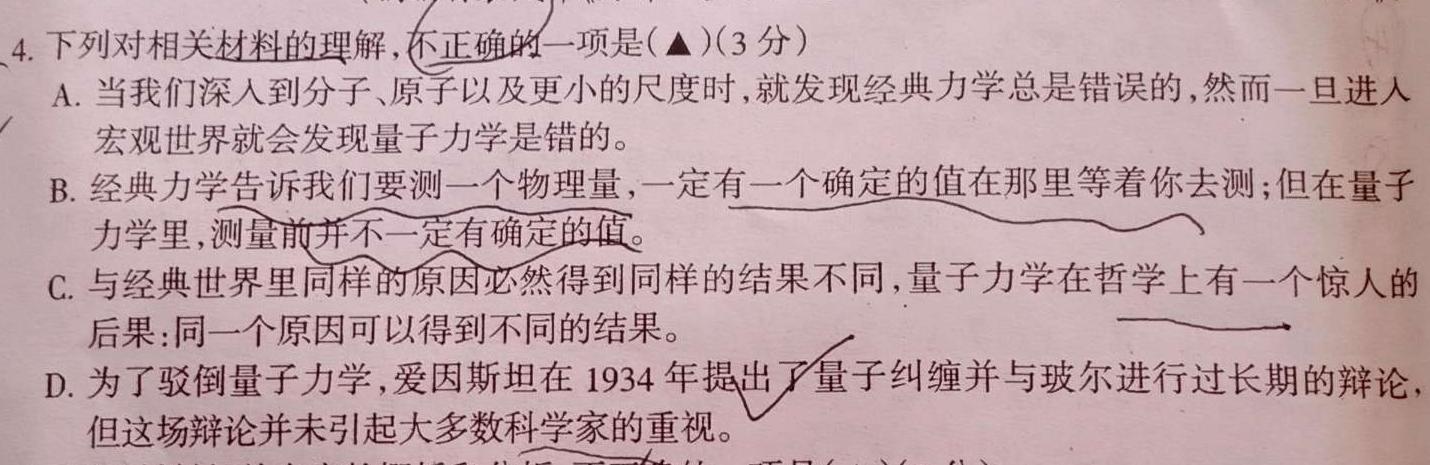 4. 下列对相关材料的理解,不正确的一项是(▲)(3 分)
A. 当我们深入到分子、原子以及更小的尺度时,就发现经典力学总是错误的,然而一旦进入
宏观世界就会发现量子力学是错的。
B. 经典力学告诉我们要测一个物理量,一定有一个确定的值在那里等着你去测;但在量子
力学里,测量前并不一定有确定的值。
C. 与经典世界里同样的原因必然得到同样的结果不同,量子力学在哲学上有一个惊人的
后果:同一个原因可以得到不同的结果。
D. 为了驳倒量子力学,爱因斯坦在 1934 年提出了量子纠缠并与玻尔进行过长期的辩论,
但这场辩论并未引起大多数科学家的重视。